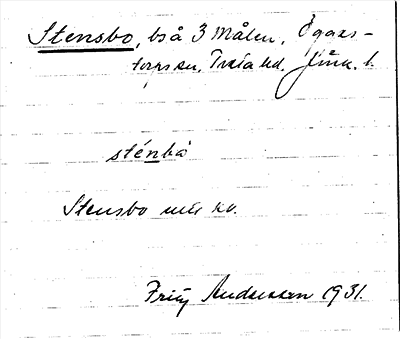 Stensbo, bså 3 Målen, Öggestorps sn, Tveta hd. Jönk. l.
sténbå
Stensbo utt. kv.
Fritz Andersson 1931.